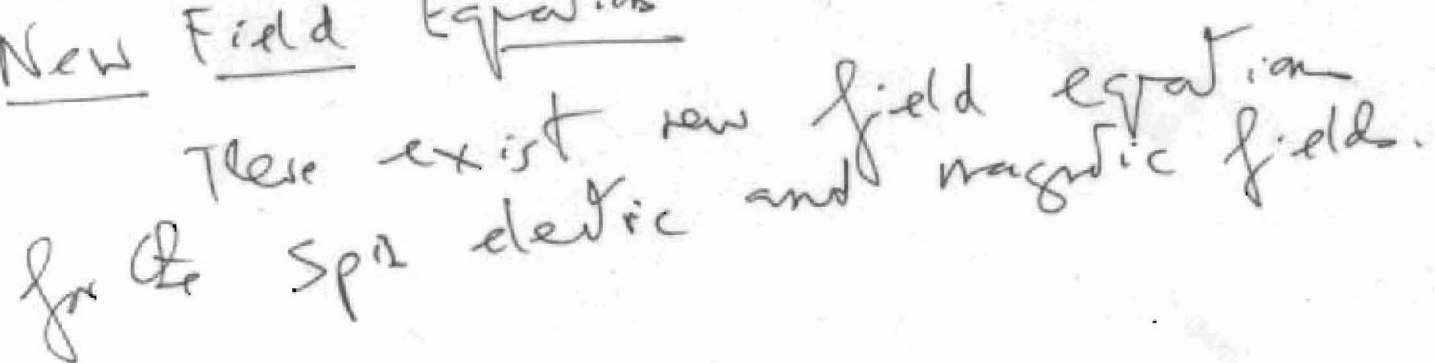 New Field Equations
There exist new field equation
for the spin electric and magnetic fields.